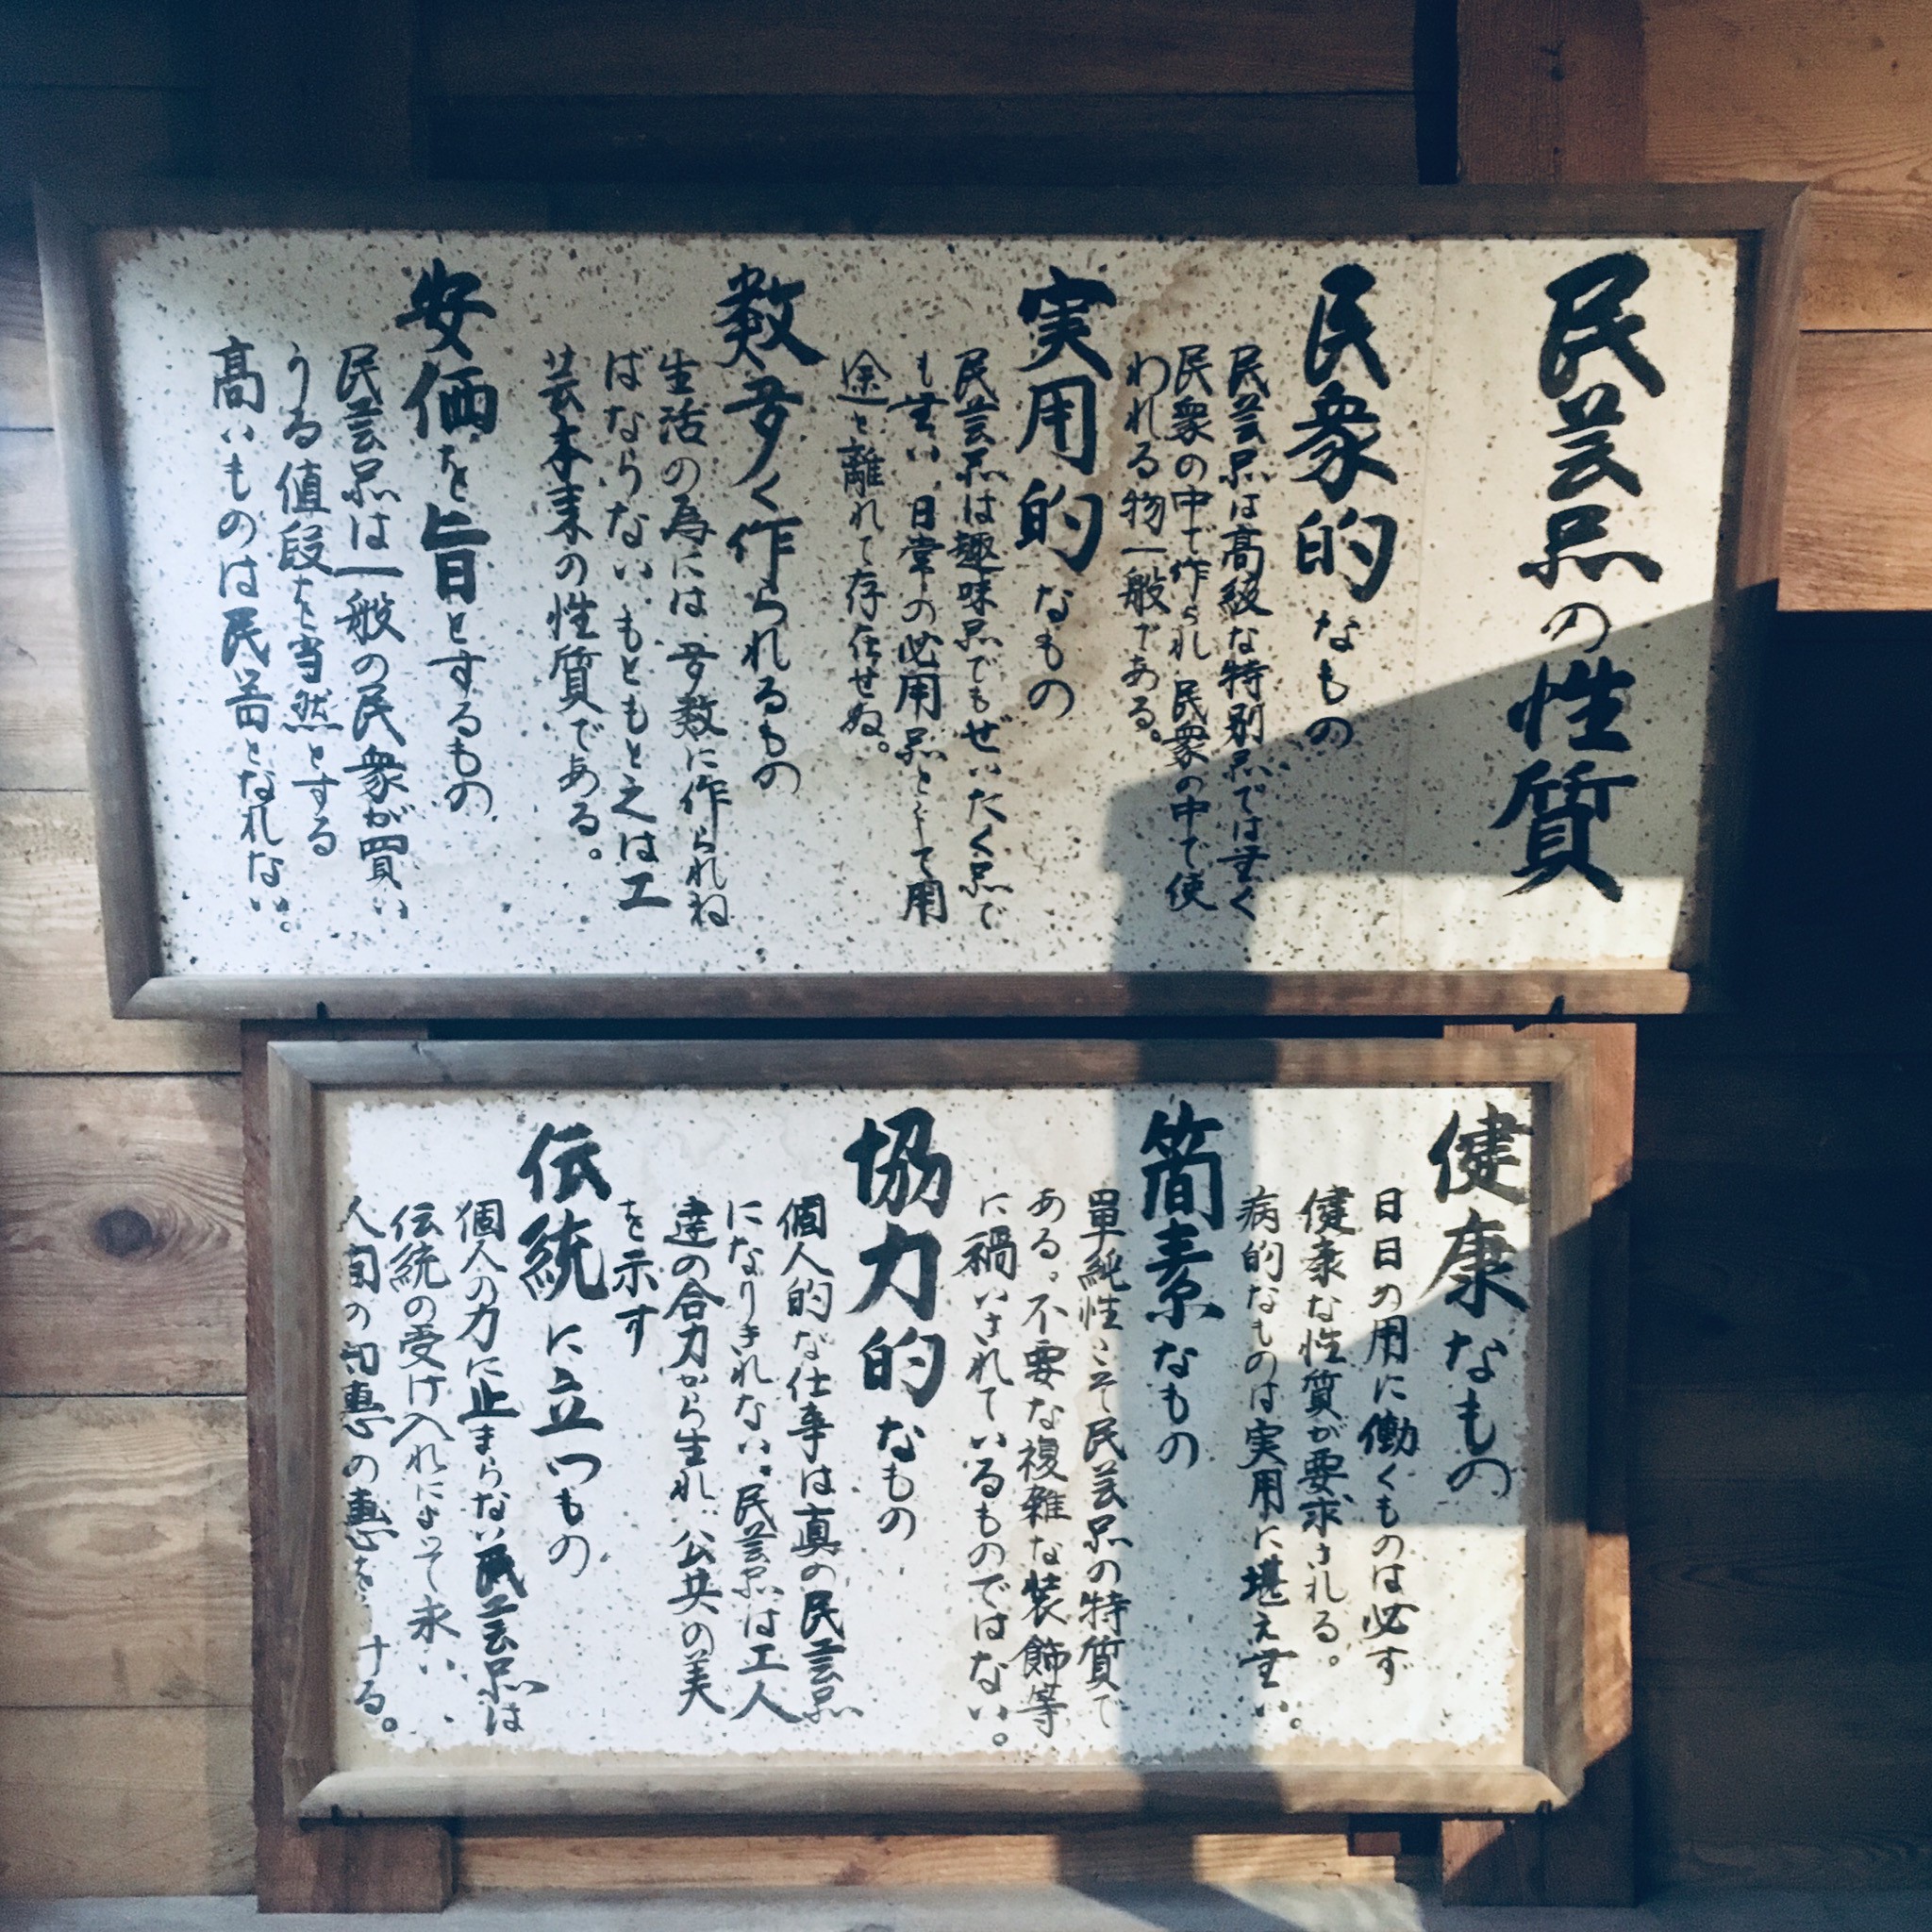 民芸品の性質
民衆的なもの
民芸品は高級な特別品では無く
民衆の中で作られ民衆の中で使
われる物一般である。
実用的なもの
民芸品は趣味品でもぜいたく品で
も無い、日常の必用品として用
途を離れて存在せぬ。
数多く作られるもの
生活の為には多数に作られね
ばならない、もともと之は工
芸本来の性質である。
安価を旨とするもの
民芸品は一般の民衆が買い
うる値段を当然とする
高いものは民芸となれない。
健康なもの
日日の用に働くものは必ず
健康な性質が要求される。
病的なものは実用に堪え無い。
簡素なもの
單純性こそ民芸品の特質で
ある。不要な複雑な装飾等
に禍いされているものではない。
協力的なもの
個人的な仕事は真の民芸品
になりきれない、民芸品は工人
達の合力から生れ、公共の美
を示す
伝統に立つもの
個人の力に止まらない民芸品は
伝統の受け入れによって永い
人間の知恵の恵を ける。